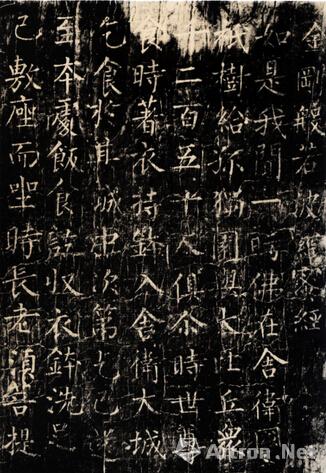 金剛般若波羅蜜經
如是我聞一時佛在舍衛國
祇樹給孤獨園與大比丘眾
千二百五十人俱尒時世尊
食時著衣持鉢入舍衛大城
乞食於其城中次第乞已還
至本處飯食訖收衣鉢洗足
已敷座而坐時長老須菩提
Artron.Net